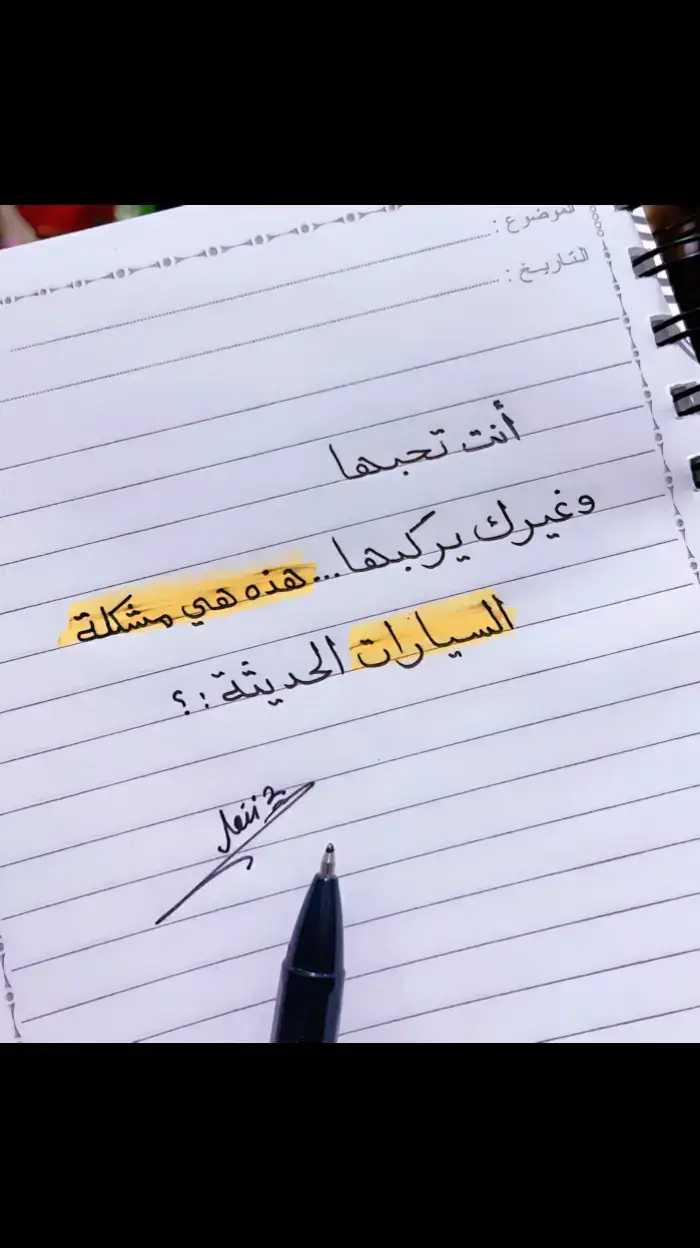 الموضوع :
التاريخ :
أنت تحبها
وغيرك يركبها... هذه هي مشكلة
السيارات الحديثة :؟